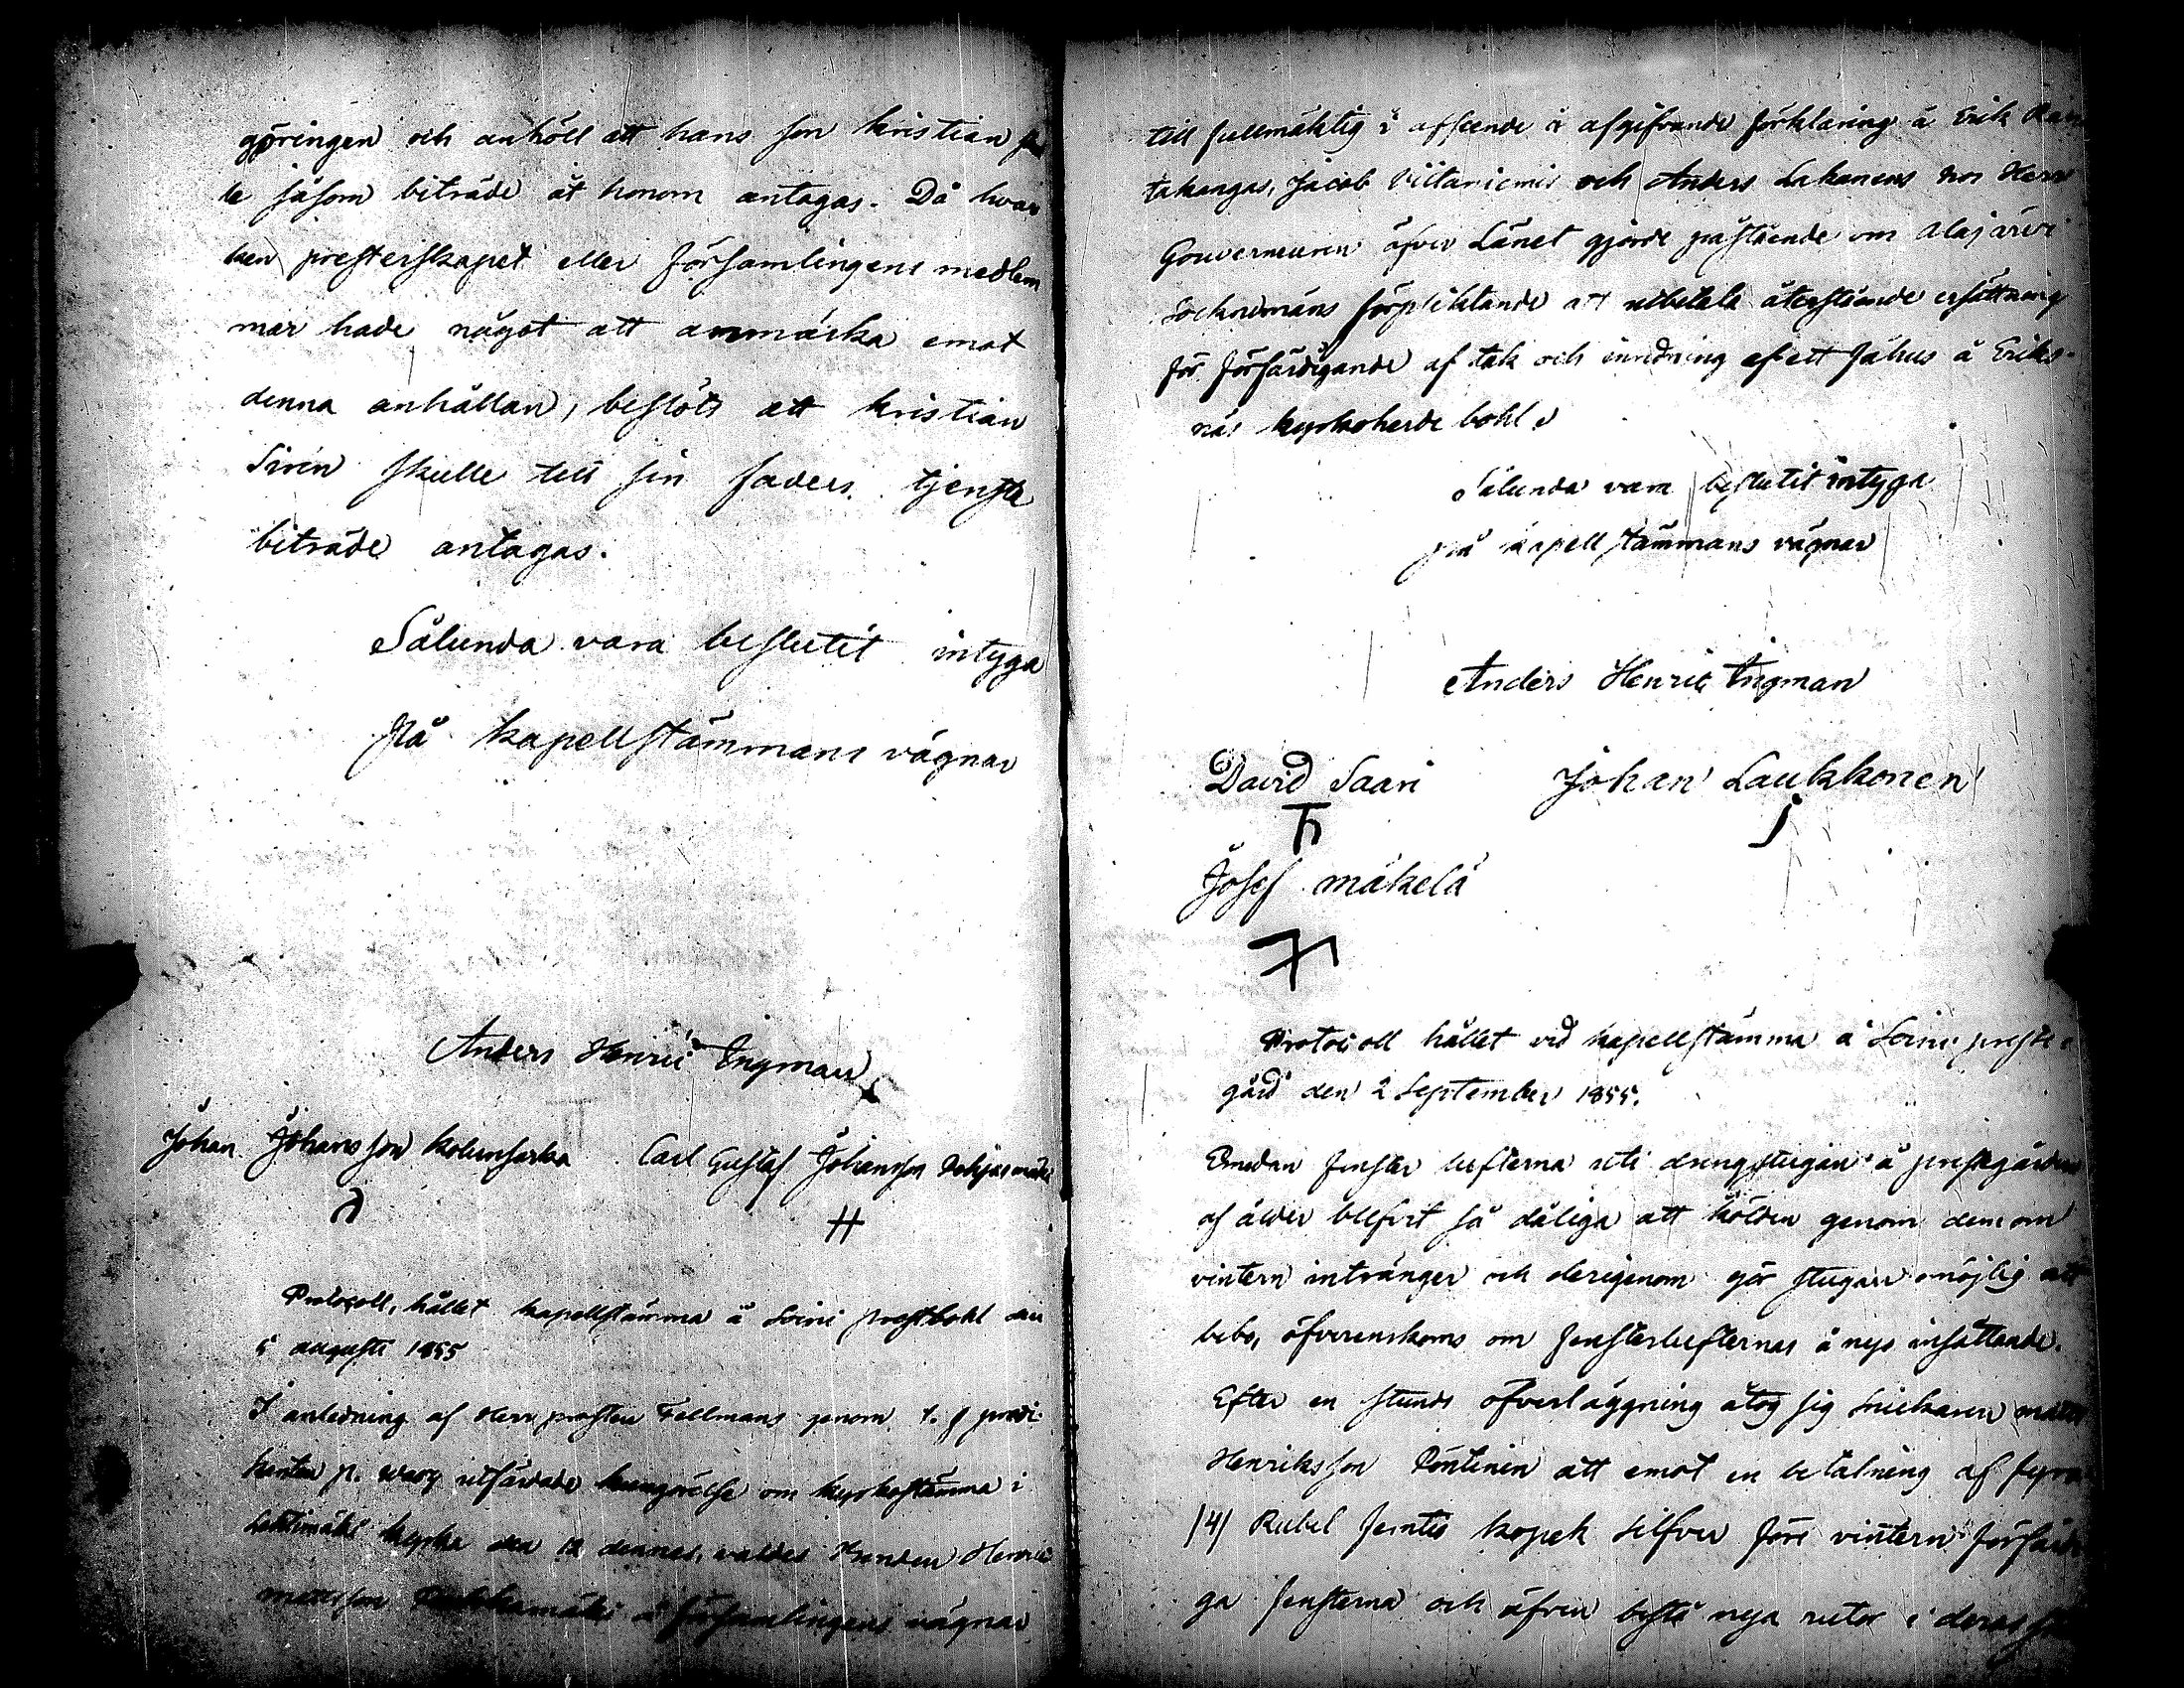 göringen och anhöll att hans son Kristian
te såsom biträde åt honom antagas. Då hvar
ken presterskapet eller församlingens medlem
mar hade något att anmärka emot
denna anhållan, beslöts att Kristian
Sirén skulle till sin faders tjenste
biträde antagas.
Sålunda vara beslutit intyga
På kapellstämmans vägnar
Anders Henric Ingman
Johan Johansson Kolunsarka Carl Gustaf Johansson
Protocoll, hållet kapellstämma å Soini prestbohl den
5 augusti 1855
I anledning af Herr prosten Fellmans genom t. f predi
kanten utfärdade kungörelse om kyrkostämma i
Lehtimäki kyrka den 12 dennes, valdes bonden Henric
Mattsson å församlingens vägnar
till fullmäktig i afseende å afgifvande förklaring å Erik
takangas, Jacob Viitaniemis och Anders Lakanens hos Herr
Gouverneuren öfver Länet gjorde påstående om Alajärvi
Socknemäns förpliktande att utbetala återstående ersättning
för förfärdigande af tak och inredning af ett fähus å Eriks-
näs kyrkoherde bohl.
Sålunda vara beslutit intyga
på kapell stämmans vägnar
Anders Henric Ingman
David Saari Johan Laukkonen
Josef Mäkelä
Protocoll hållet vid kapellstämma å Soini preste
gård den 2 September 1855.
Emedan fenster lufterna uti drengstugan å prestgården
af ålder blifvit så dåliga att kölden genom dem om
vintern intränger och derigenom gör stugan omöjlig att
bebo, öfverenskoms om fensterlufternas å nyo insättande.
Efter en stunds öfverläggning åtog sig snickaren Matts
Henriksson Pöntinen att emot en betalning af fyra
/4/ Rubel femtio kopek silfver före vintern förfärdi
ga fensterna och äfven bestå nya rutor i deras